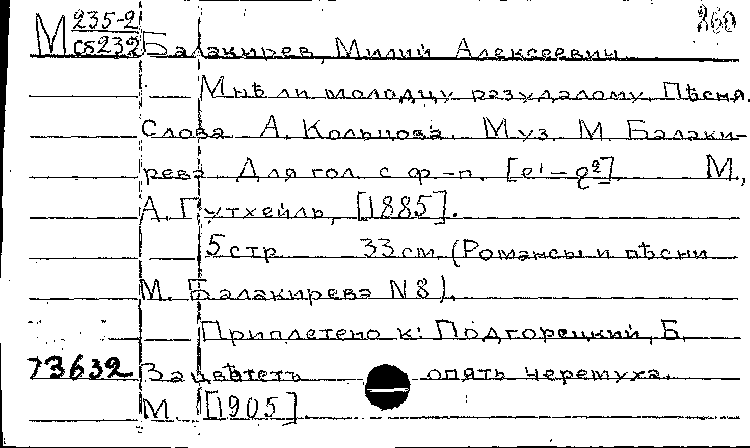 860
М 235-2
сб232 Балакирев, Милий Алексеевич
Мнѣ ли молодцу разудалому. Пѣсня.
Слова А. Кольцова. Муз. М. Балаки-
рева. Для гол. с ф.-п. [e¹-g²]. М.,
А. Гутхейль, [1885].
5 стр. 33 см. (Романсы и пѣсни
М. Балакирева N 8).
Приплетено к: Подгорецкий, Б.
73632 Зацвѣтетъ опять черемуха.
М. [1905]